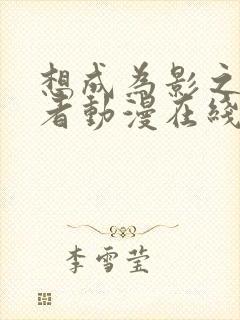 想成為影之
者動漫在綫
李雪莹